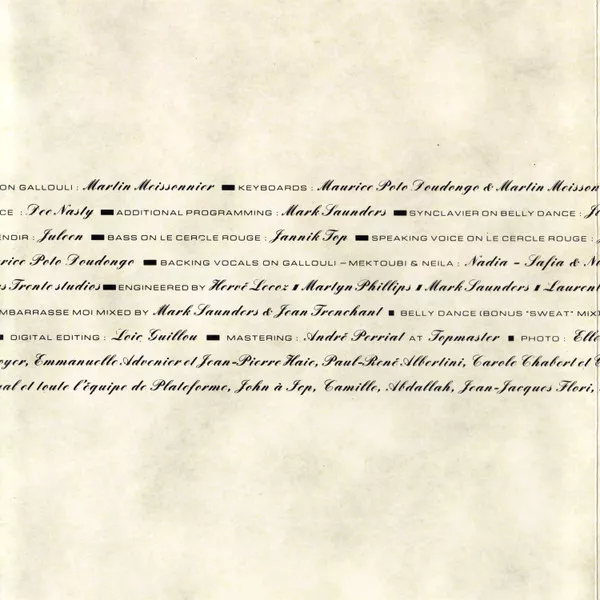 ON GALLOULI : Martin Meissonnier ▬ KEYBOARDS : Maurice Poto Doudongo & Martin Meisson
CE : Dee Nasty ▬ ADDITIONAL PROGRAMMING : Mark Saunders ▬ SYNCLAVIER ON BELLY DANCE : Ju
ENOIR : Juleen ▬ BASS ON LE CERCLE ROUGE : Jannik Top ▬ SPEAKING VOICE ON LE CERCLE ROUGE :
rice Poto Doudongo ▬ BACKING VOCALS ON GALLOULI – MEKTOUBI & NEILA : Nadia – Safia & N
es Trente studios ▬ ENGINEERED BY Hervé Lecoz ▮ Martyn Phillips ▮ Mark Saunders ▮ Laurent
MBARRASSE MOI MIXED BY Mark Saunders & Jean Trenchant ▪ BELLY DANCE (BONUS "SWEAT" MIX)
▪ DIGITAL EDITING : Loic Guillou ▪ MASTERING : André Perriat AT Topmaster ▪ PHOTO : Elle
oyer, Emmanuelle Advenier et Jean-Pierre Haie, Paul-René Albertini, Carole Chabert et C
al et toute l'équipe de Plateforme, John à Iop, Camille, Abdallah, Jean-Jacques Flori,